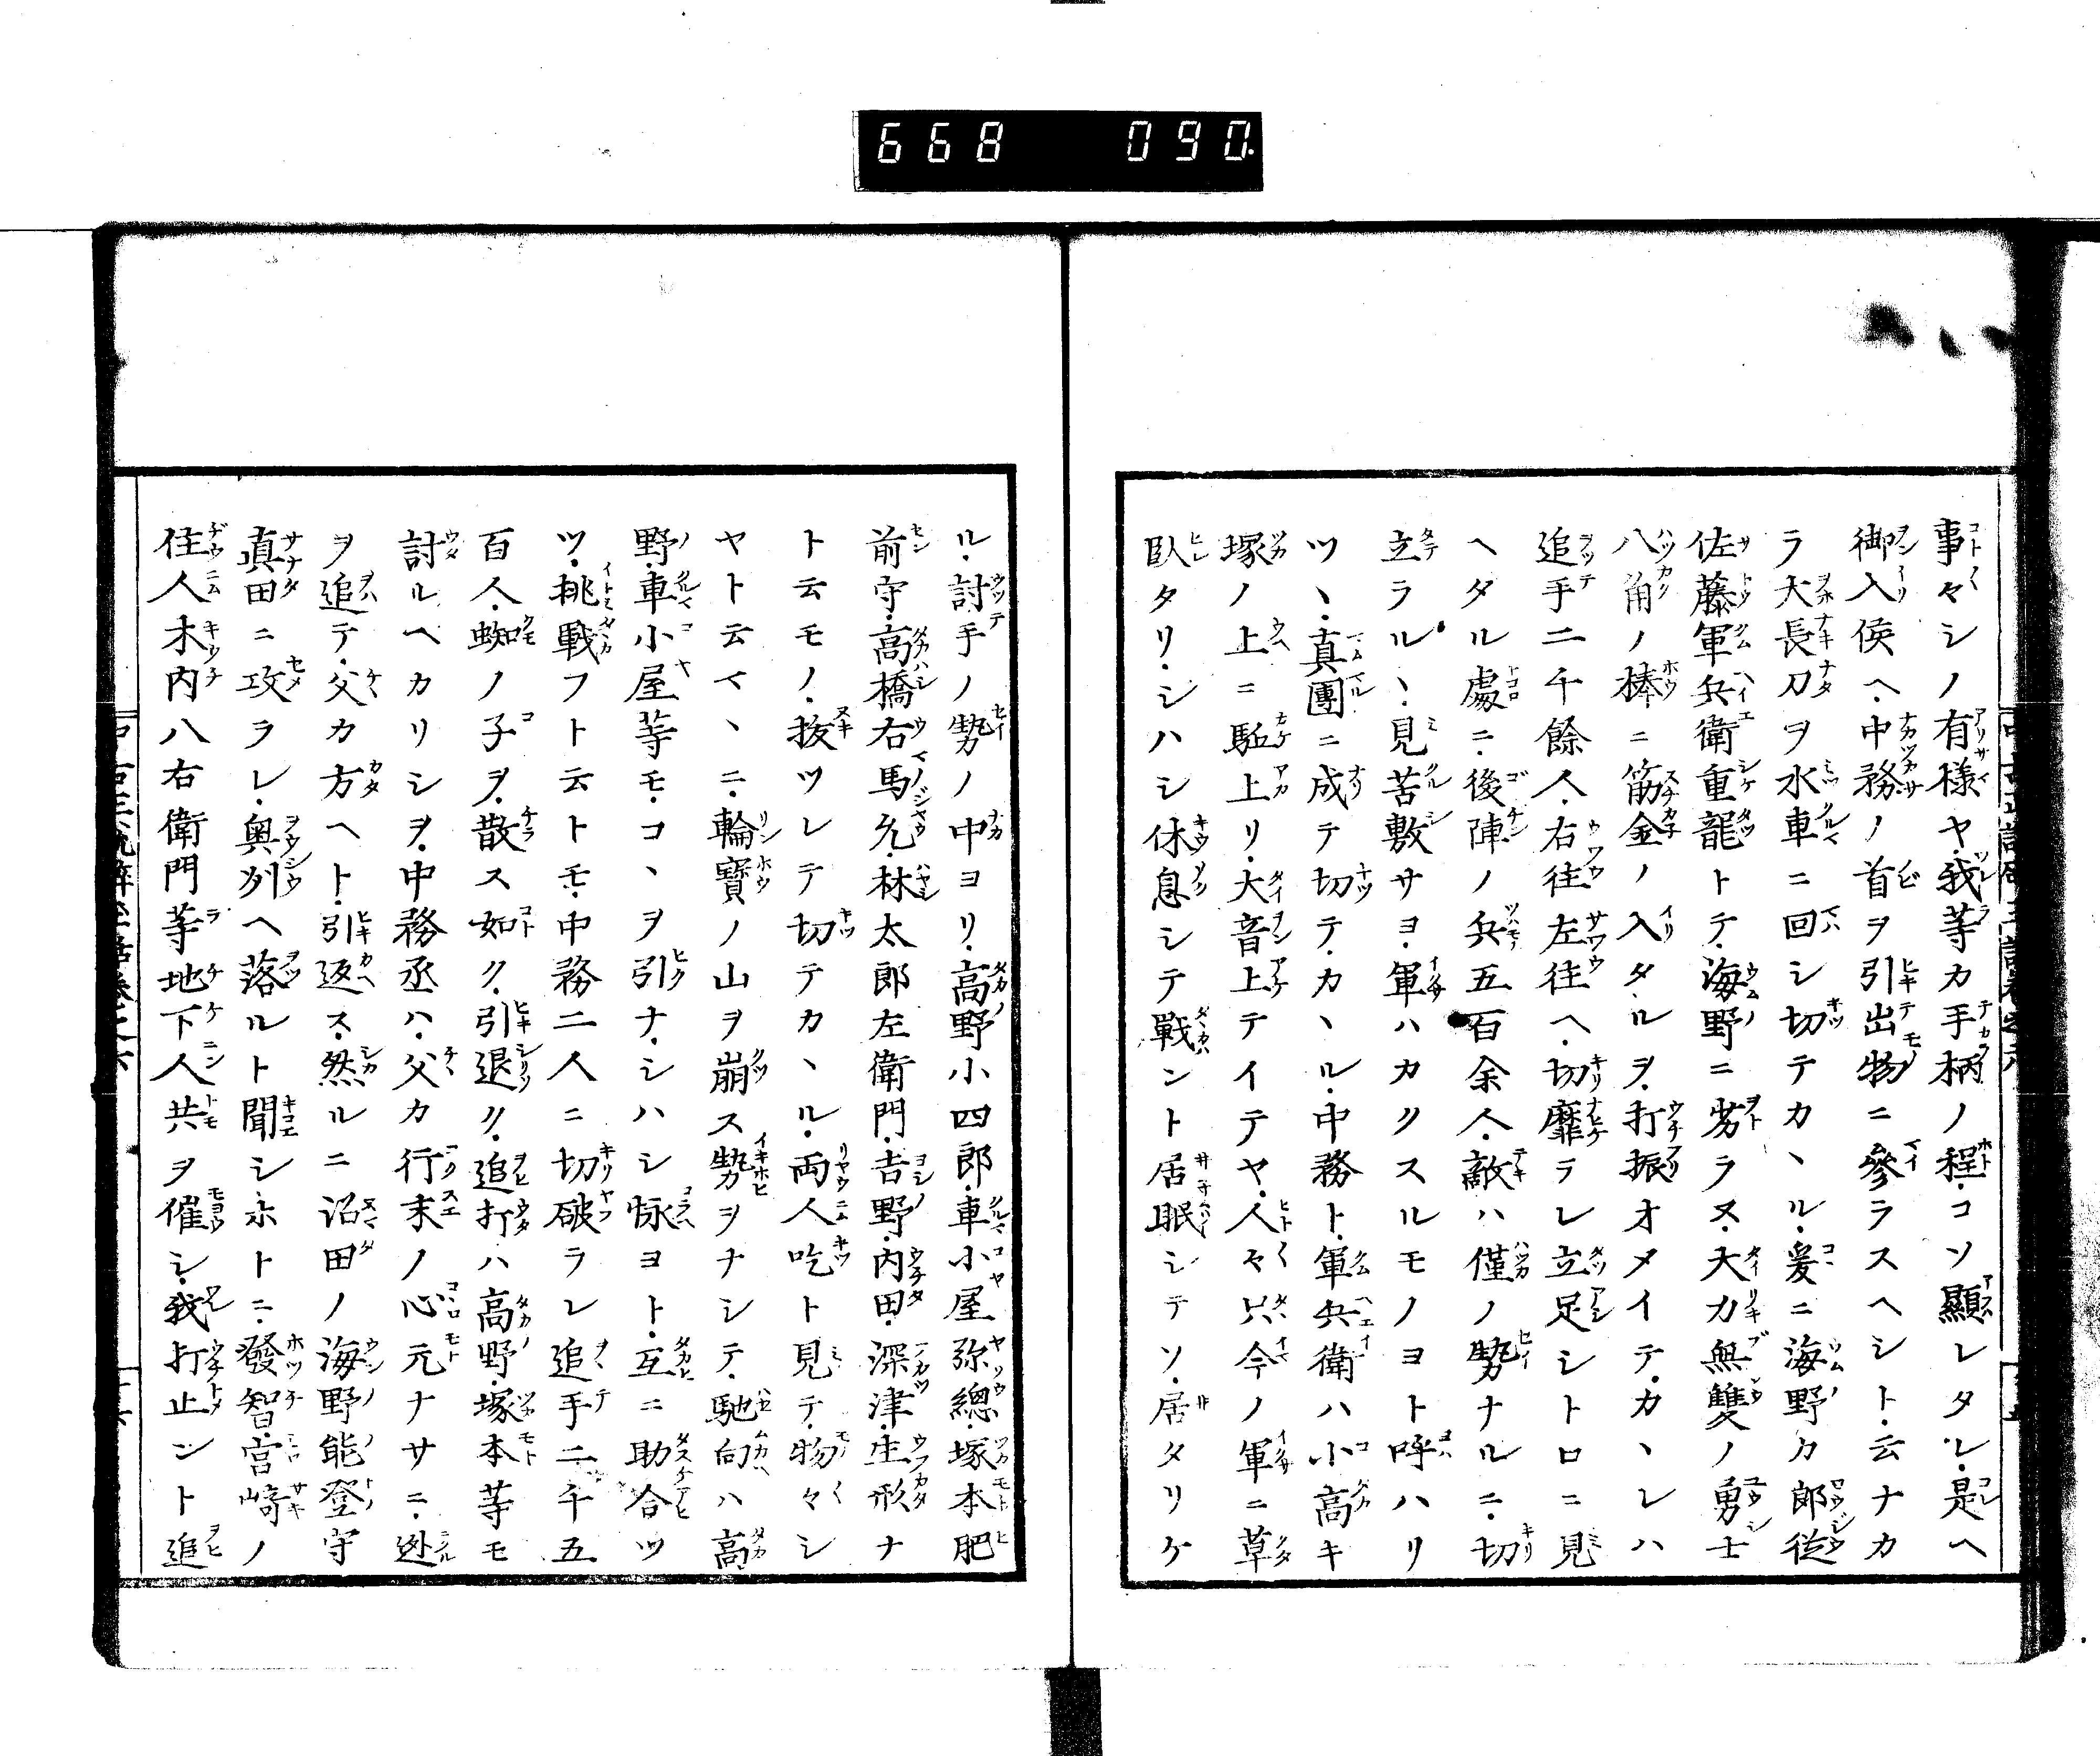 668 090.
事々シノ有様ヤ我等カ手柄ノ程コソ顯レタレ是ヘ
御入侯ヘ中務ノ首ヲ引出物ニ參ラスヘシト云ナカ
ラ大長刀ヲ水車ニ回シ切テカヽル爰ニ海野カ郎從
佐藤軍兵衛重龍トテ海野ニ劣ラヌ大力無雙ノ勇士
八角ノ棒ニ筋金ノ入タルヲ打振オメイテカヽレハ
追手二千餘人右往左往ヘ切靡ラレ立足シトロニ見
ヘタル處ニ後陣ノ兵五百余人敵ハ僅ノ勢ナルニ切
立ラルヽ見苦敷サヨ軍ハカクスルモノヨト呼ハリ
ツヽ真團ニ成テ切テカヽル中務ト軍兵衛ハ小高キ
塚ノ上ニ駈上リ大音上テイテヤ人々只今ノ軍ニ草
臥タリシハシ休息シテ戰ント居眠シテソ居タリケ
ル討手ノ勢ノ中ヨリ高野小四郎車小屋弥總塚本肥
前守高橋右馬允林太郎左衛門吉野内田深津生形ナ
ト云モノ拔ツレテ切テカヽル両人吃ト見テ物々シ
ヤト云マヽニ輪寶ノ山ヲ崩ス勢ヲナシテ馳向ハ高
野車小屋等モコヽヲ引ナシハシ怺ヨト互ニ助合ツ
ツ挑戰フト云トモ中務二人ニ切破ラレ追手二千五
百人蜘ノ子ヲ散ス如ク引退ク追打ハ高野塚本等モ
討ルヘカリシヲ中務丞ハ父カ行末ノ心元ナサニ迯
ヲ追テ父カ方ヘト引返ス然ルニ沼田ノ海野能登守
真田ニ攻ラレ奥州ヘ落ルト聞シホトニ發智宮﨑ノ
住人木内八右衛門等地下人共ヲ催シ我打止ント追